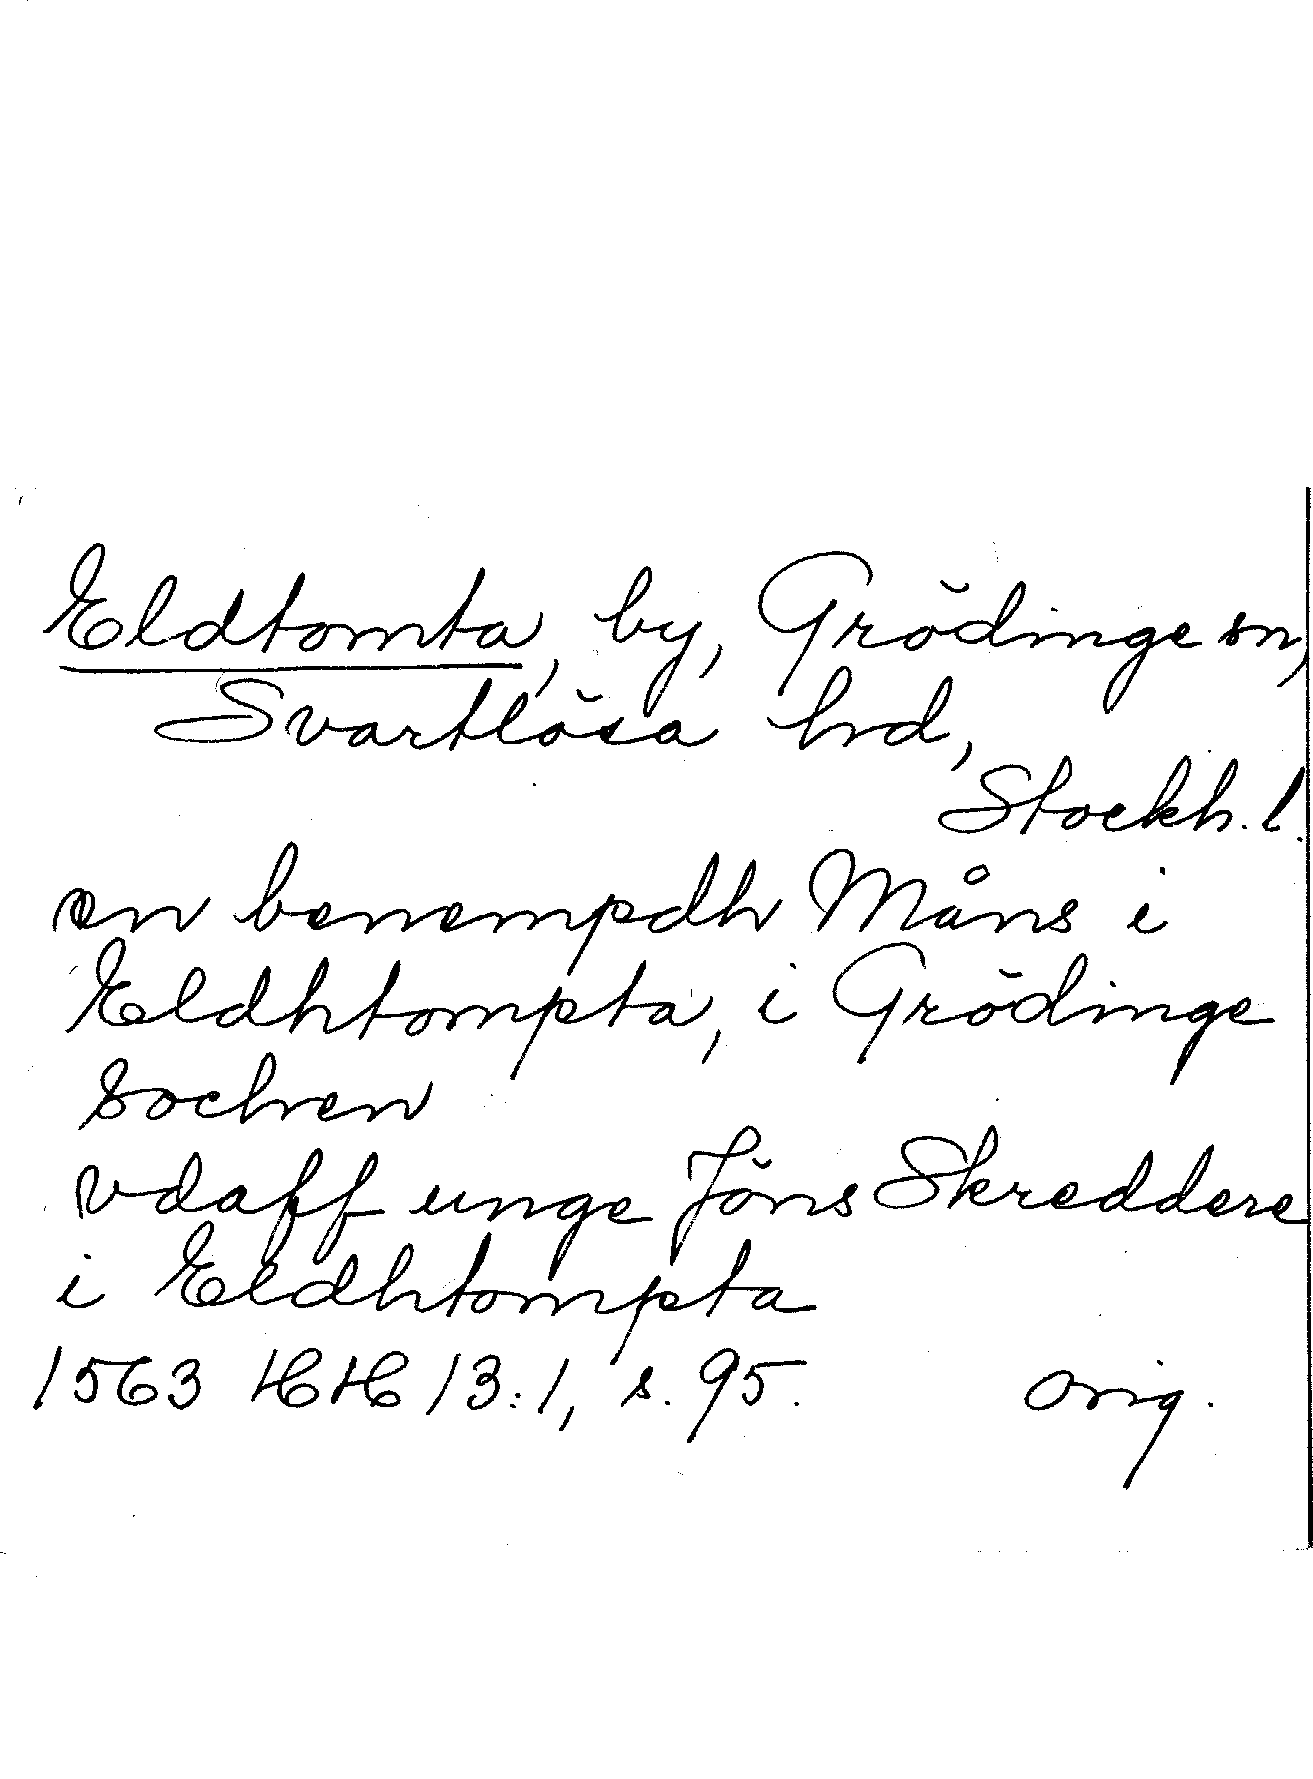 Eldtomta, by, Grödinge sn,
Svartlösa hd,
Stockh. l.
en benempdh Måns i
Eldhtompta, i Grödinge
sochen
vdaff unge Jöns Skreddere
i Eldhtompta
1563 HH 13:1, s. 95. orig.